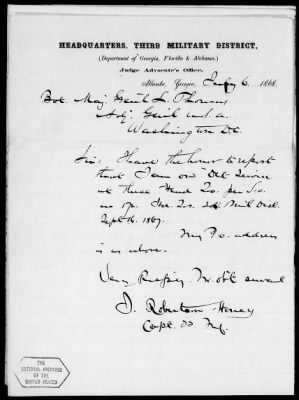 HEADQUARTERS, THIRD MILITARY DISTRICT,
(Department of Georgia, Florida & Alabama.)
Judge Advocate's Office,
Atlanta, Georgia, July 6. 1868
Bvt. Maj. Genl L. Thomas
Adj. Genl U.S.A.
Washington DC.
Sir; I have the honor to report
that I am on Det Service
at these Head Qs. per S.O.
no 174. Hd. Qs. 3d Mil Dist.
Sept 1867.
My P.O. address
is as above.
Very Respfy. Yr obt servant
J. Robertson
Capt. 33 Inf.
THE
NATIONAL ARCHIVES
OF THE
UNITED STATES